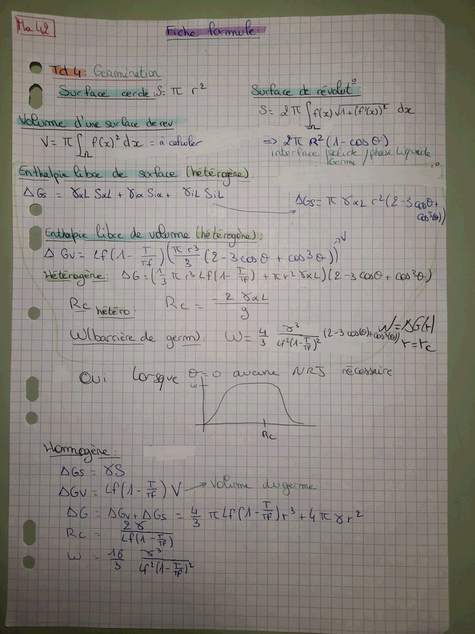 Ma 42
Fiche formule
Td 4 Germination
Surface cercle, S = π r²
Surface de révolut°
S = 2π ∫Ω f(x) √1+(f'(x))² dx
Volume d'une surface de rev
V = π ∫Ω f(x)² dx = à calculer
⇒ 2π R² (1 - cos θ)
interface / phase liquide
Germe
Enthalpie libre de surface (hétérogène)
ΔGs = γαL SαL + γiα Siα + γiL SiL
ΔGs = π γαL r² (2 - 3 cos θ + cos³(θ))
Enthalpie libre de volume (hétérogène) :
Δ Gv = Lf (1 - T/Tf) (π r³/3 (2 - 3 cos θ + cos³ θ)) V
Hétérogène : ΔG = (1/3 π r³ Lf (1 - T/Tf) + π r² γαL) (2 - 3 cos θ + cos³ θ)
Rc hétéro : Rc = - 2 γαL / g
W (barrière de germ). W = 4/3 γ³ / Lf² (1 - T/Tf)² (2 - 3 cos(θ) + cos³(θ)) W = ΔG(r)
r = rc
Oui lorsque θ = 0 aucune NRJ nécessaire
W
Rc
Homogène :
ΔGs = γS
ΔGv = Lf (1 - T/Tf) V → Volume du germe
ΔG = ΔGv + ΔGs = 4/3 π Lf (1 - T/Tf) r³ + 4 π γ r²
Rc = 2 γ / Lf (1 - T/Tf)
W = 16/3 γ³ / Lf² (1 - T/Tf)²